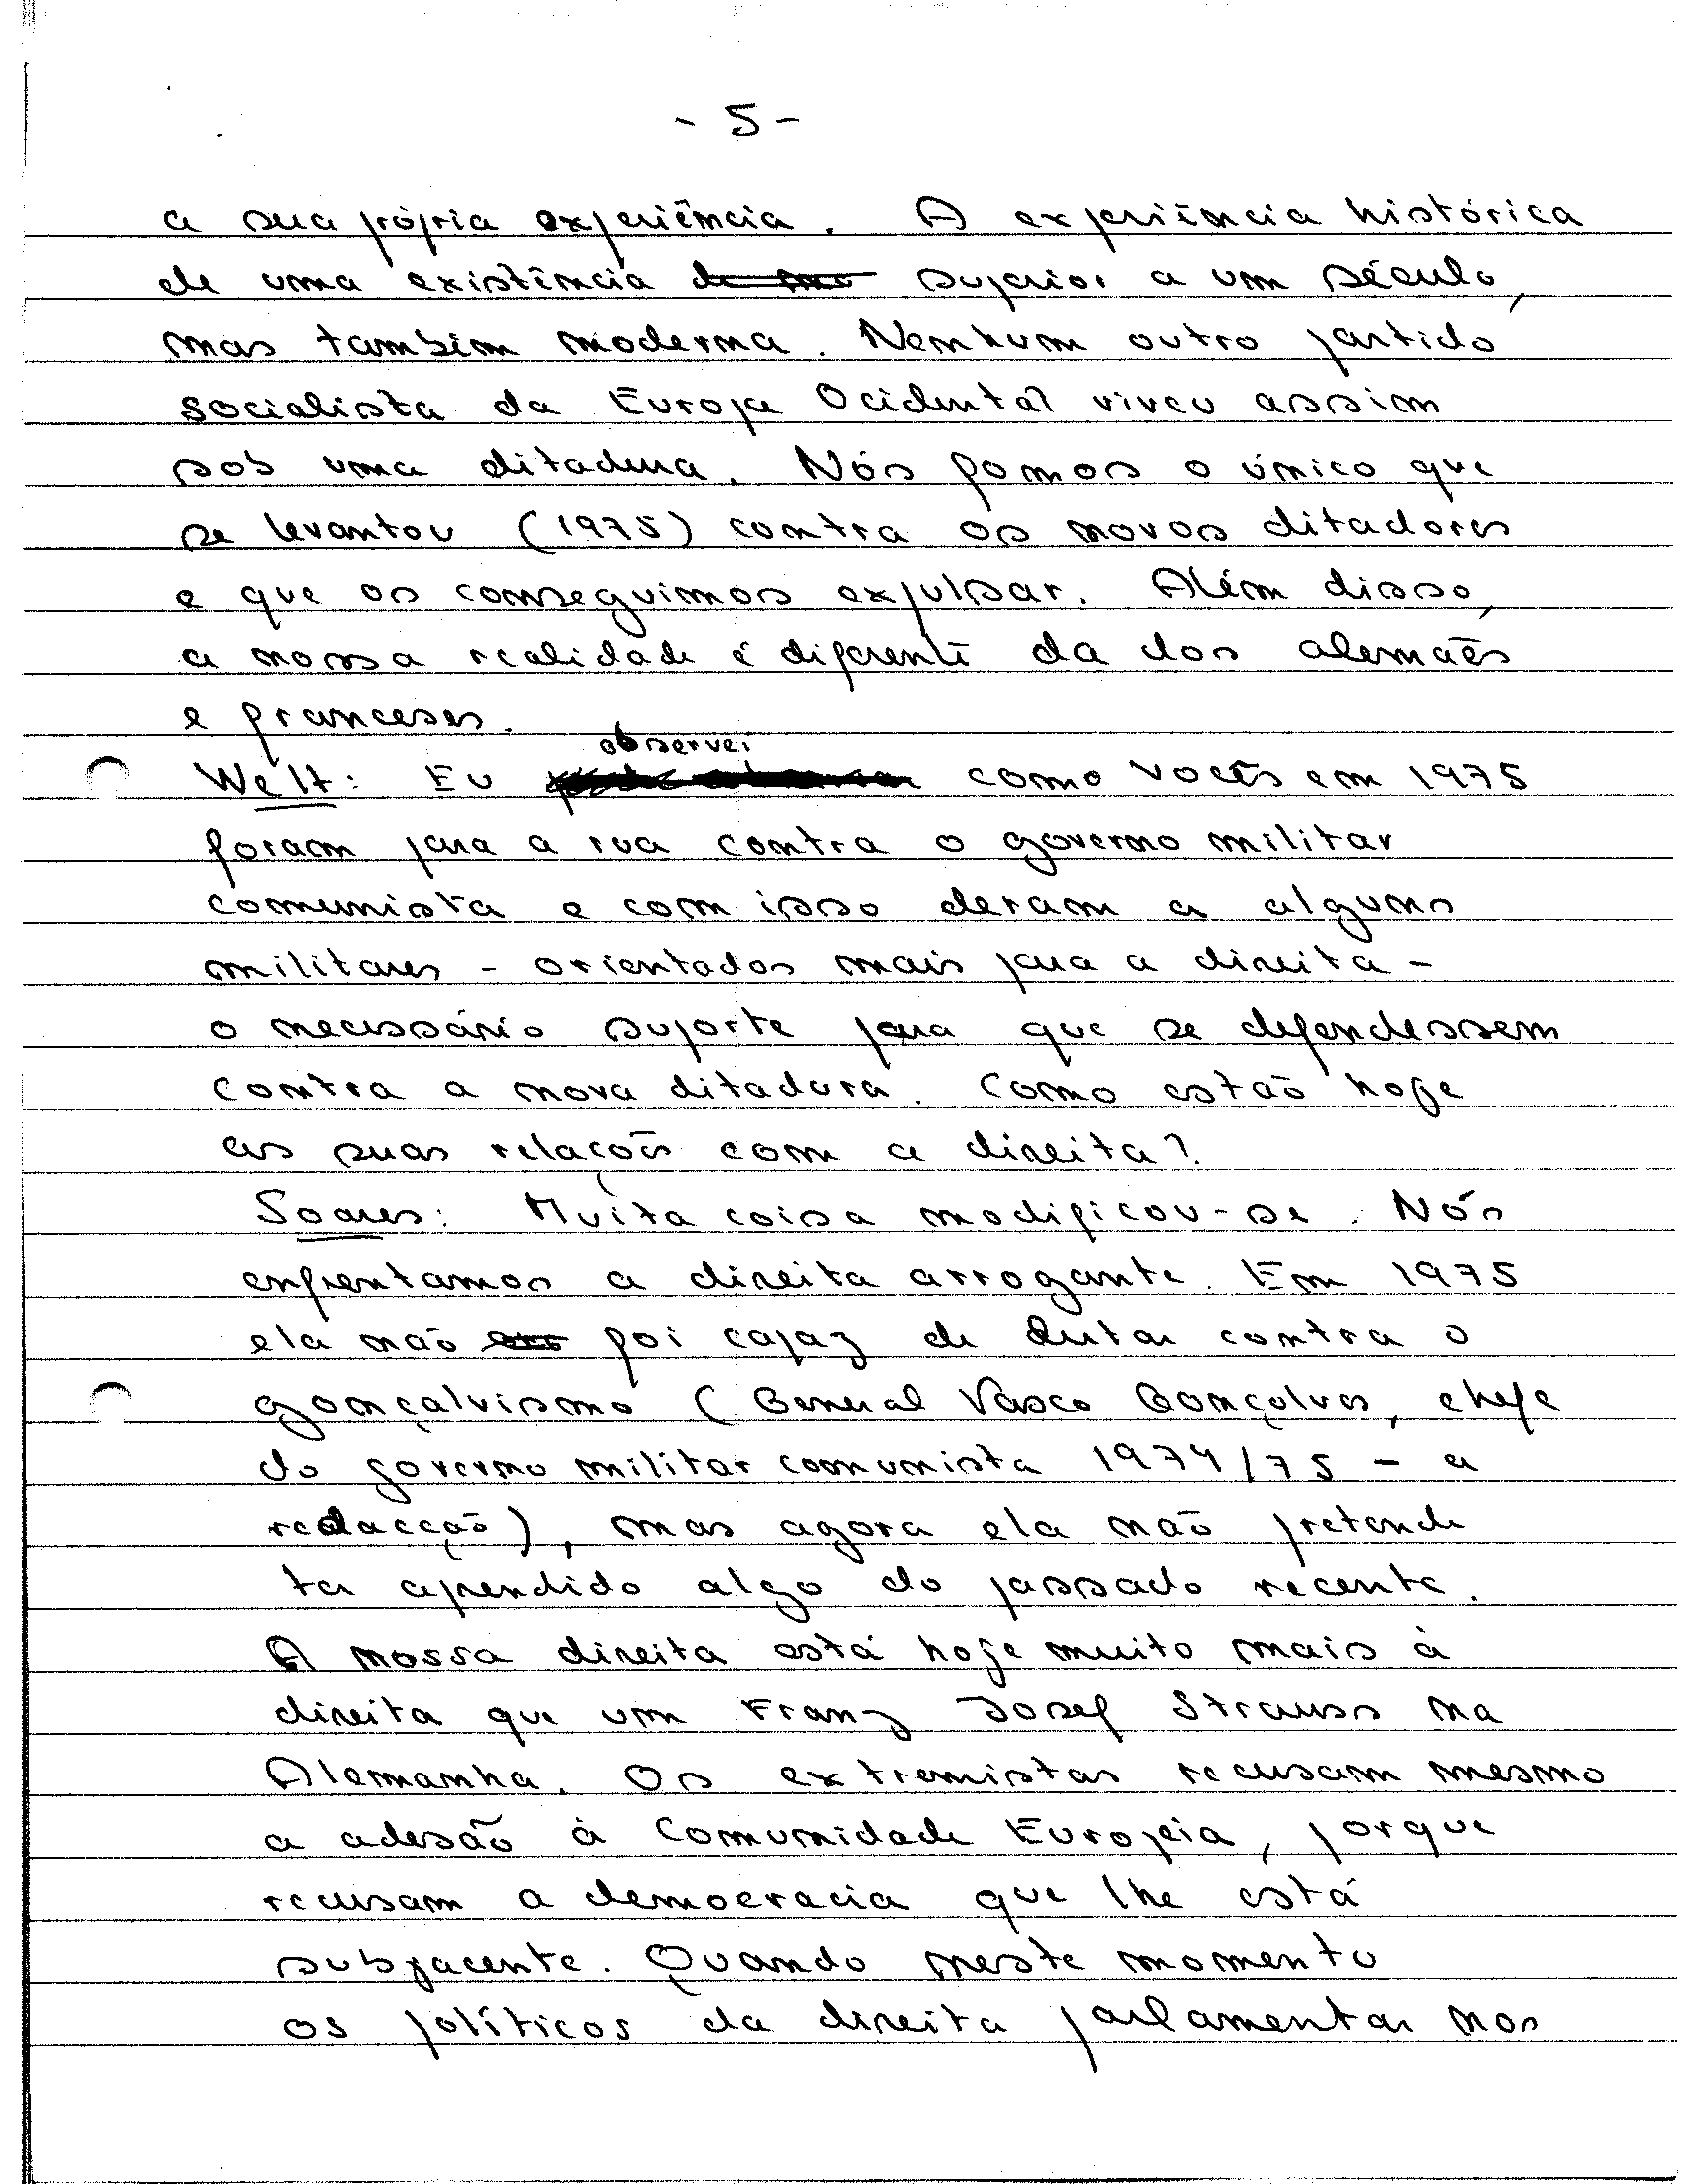 - 5 -
a sua própria experiência. A experiência histórica
de uma existência superior a um século,
mas também moderna. Nenhum outro partido
socialista da Europa Ocidental viveu assim
sob uma ditadura. Nós fomos o único que
se levantou (1975) contra os novos ditadores
e que os conseguimos expulsar. Além disso,
a nossa realidade é diferente da dos alemães
e franceses.
observei
Welt: Eu como vocês em 1975
foram para a rua contra o governo militar
comunista e com isso deram a alguns
militares - orientados mais para a direita -
o necessário suporte para que se defendessem
contra a nova ditadura. Como estão hoje
as suas relações com a direita?
Soares: Muita coisa modificou-se. Nós
enfrentamos a direita arrogante. Em 1975
ela não foi capaz de lutar contra o
gonçalvismo (General Vasco Gonçalves, chefe
do governo militar comunista 1974/75 - a
redacção), mas agora ela não pretende
ter aprendido algo do passado recente.
A nossa direita está hoje muito mais à
direita que um Franz Josef Strauss na
Alemanha. Os extremistas recusam mesmo
a adesão à Comunidade Europeia, porque
recusam a democracia que lhe está
subjacente. Quando neste momento
os políticos da direita parlamentar nos